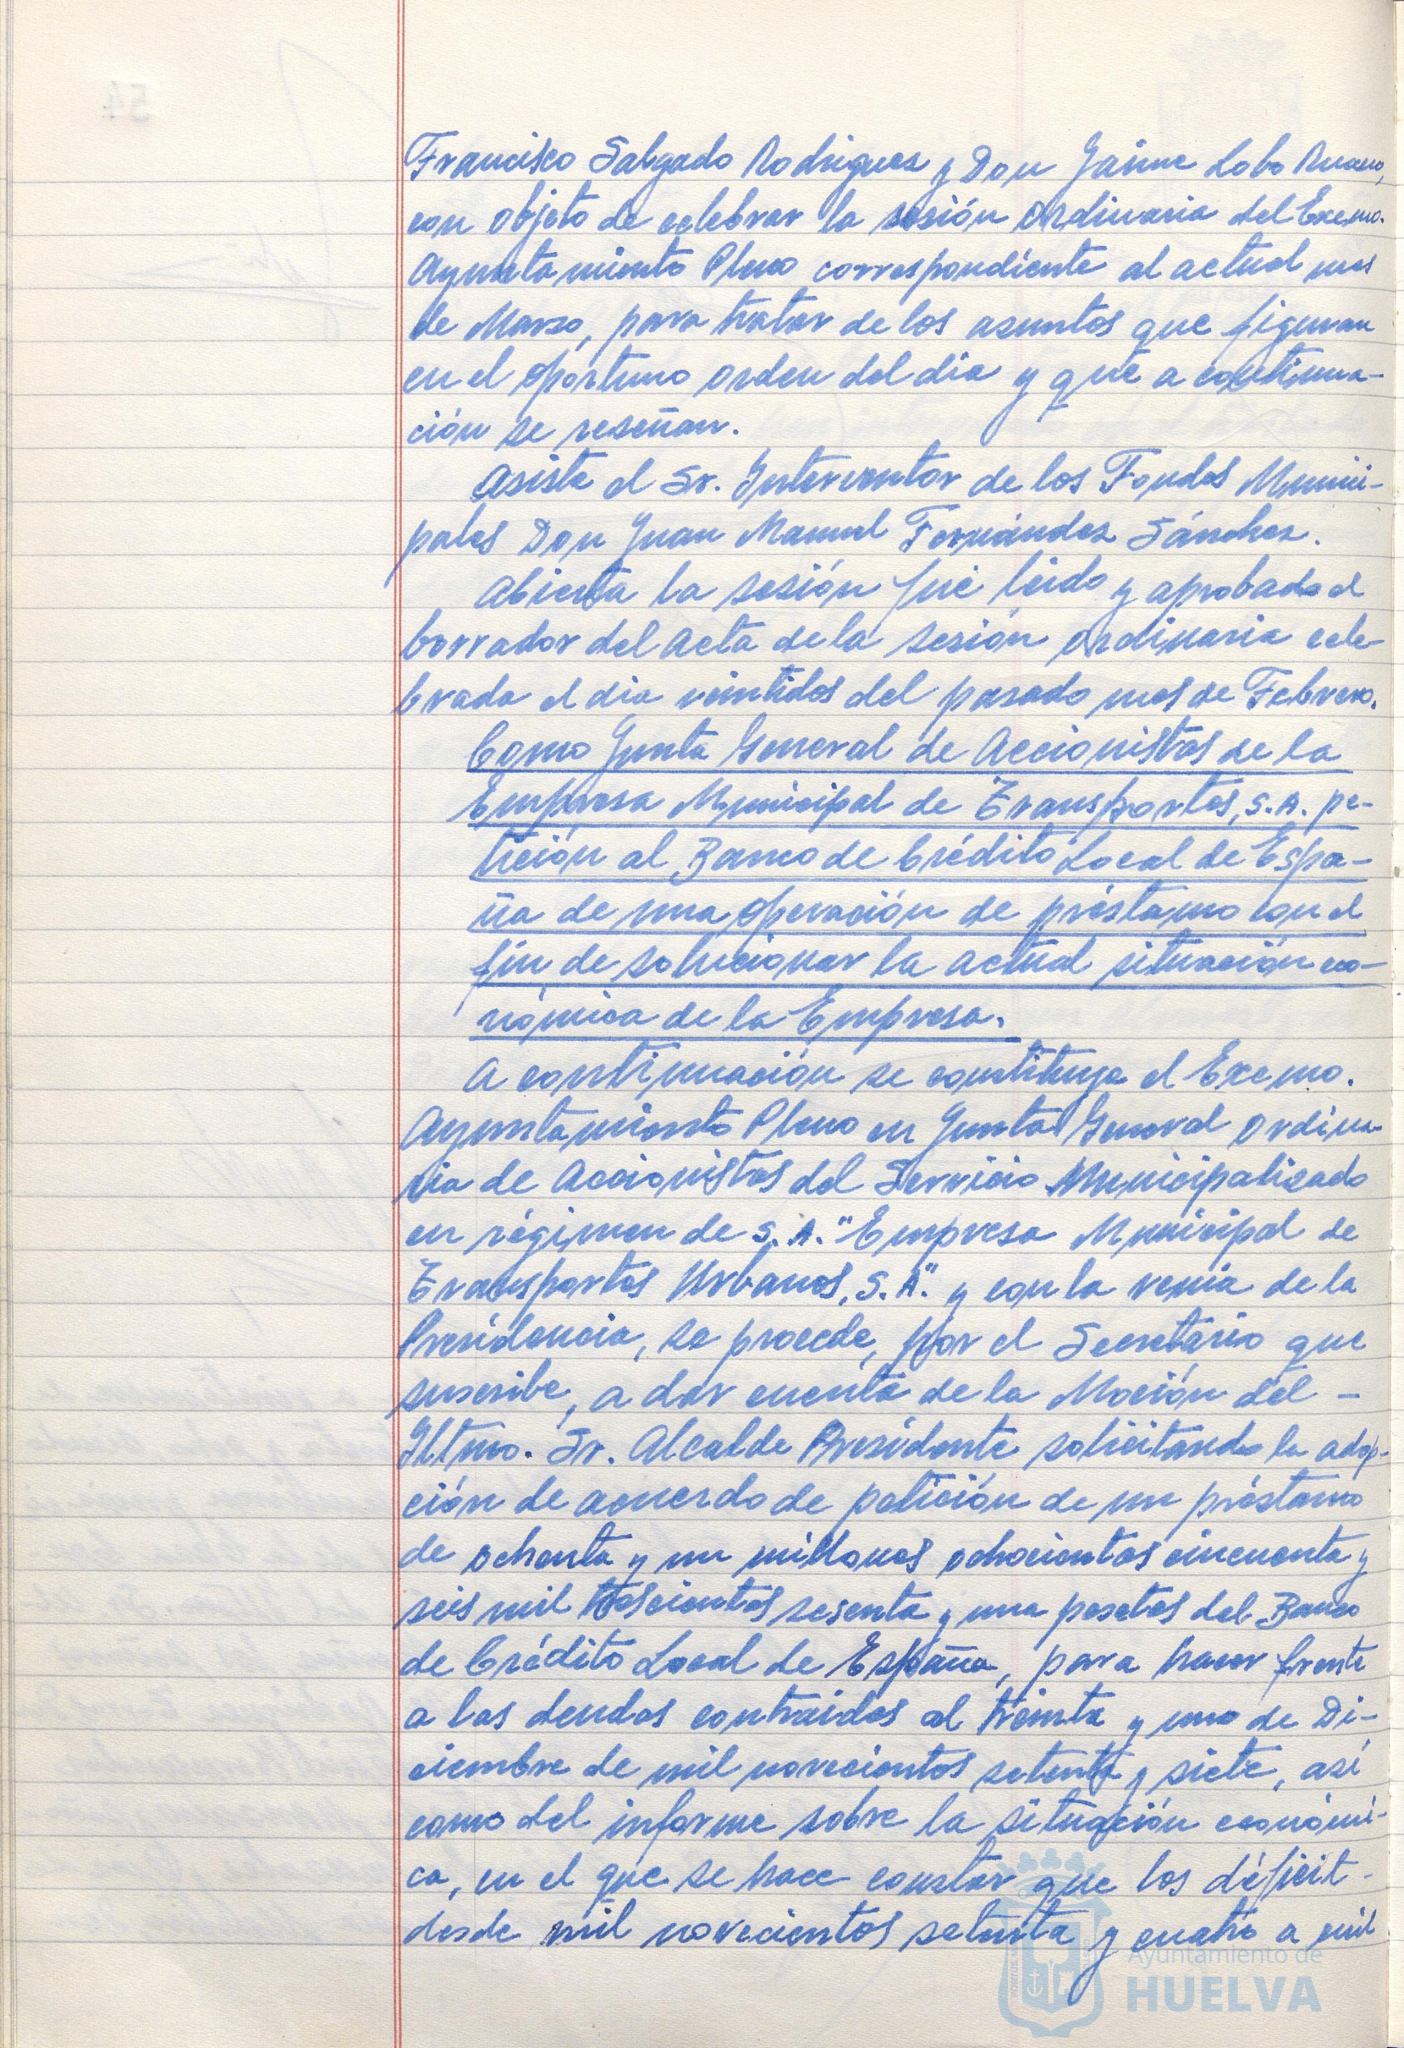 Francisco Salgado Rodriguez y Don Jaime Lobo Ruano,
con objeto de celebrar la sesión ordinaria del Excmo.
Ayuntamiento Pleno correspondiente al actual mes
de Marzo, para tratar de los asuntos que figuran
en el oportuno orden del dia y que a continua-
ción se reseñan.
Asiste el Sr. Interventor de los Fondos Munici-
pales Don Juan Manuel Fernández Sánchez.
Abierta la sesión fué leido y aprobado el
borrador del acta de la sesión ordinaria cele-
brada el dia veintidos del pasado mes de Febrero.
Como Junta General de Accionistas de la
Empresa Municipal de Transportes, S.A. pe-
tición al Banco de Crédito Local de Espa-
ña de una operación de préstamo con el
fin de solucionar la actual situación eco-
nómica de la Empresa.
A continuación se constituye el Excmo.
Ayuntamiento Pleno en Junta General Ordina-
ria de Accionistas del Servicio Municipalizado
en régimen de S.A. "Empresa Municipal de
Transportes Urbanos, S.A." y con la venia de la
Presidencia, se procede, por el Secretario que
suscribe, a dar cuenta de la Moción del -
Iltmo. Sr. Alcalde Presidente solicitando la adop-
ción de acuerdo de petición de un préstamo
de ochenta y un millones ochocientas cincuenta y
seis mil trescientas sesenta y una pesetas del Banco
de Crédito Local de España, para hacer frente
a las deudas contraidas al treinta y uno de Di-
ciembre de mil novecientos setenta y siete, así
como del informe sobre la situación económi-
ca, en el que se hace constar que los déficit -
desde mil novecientos setenta y cuatro a mil
Ayuntamiento de
HUELVA